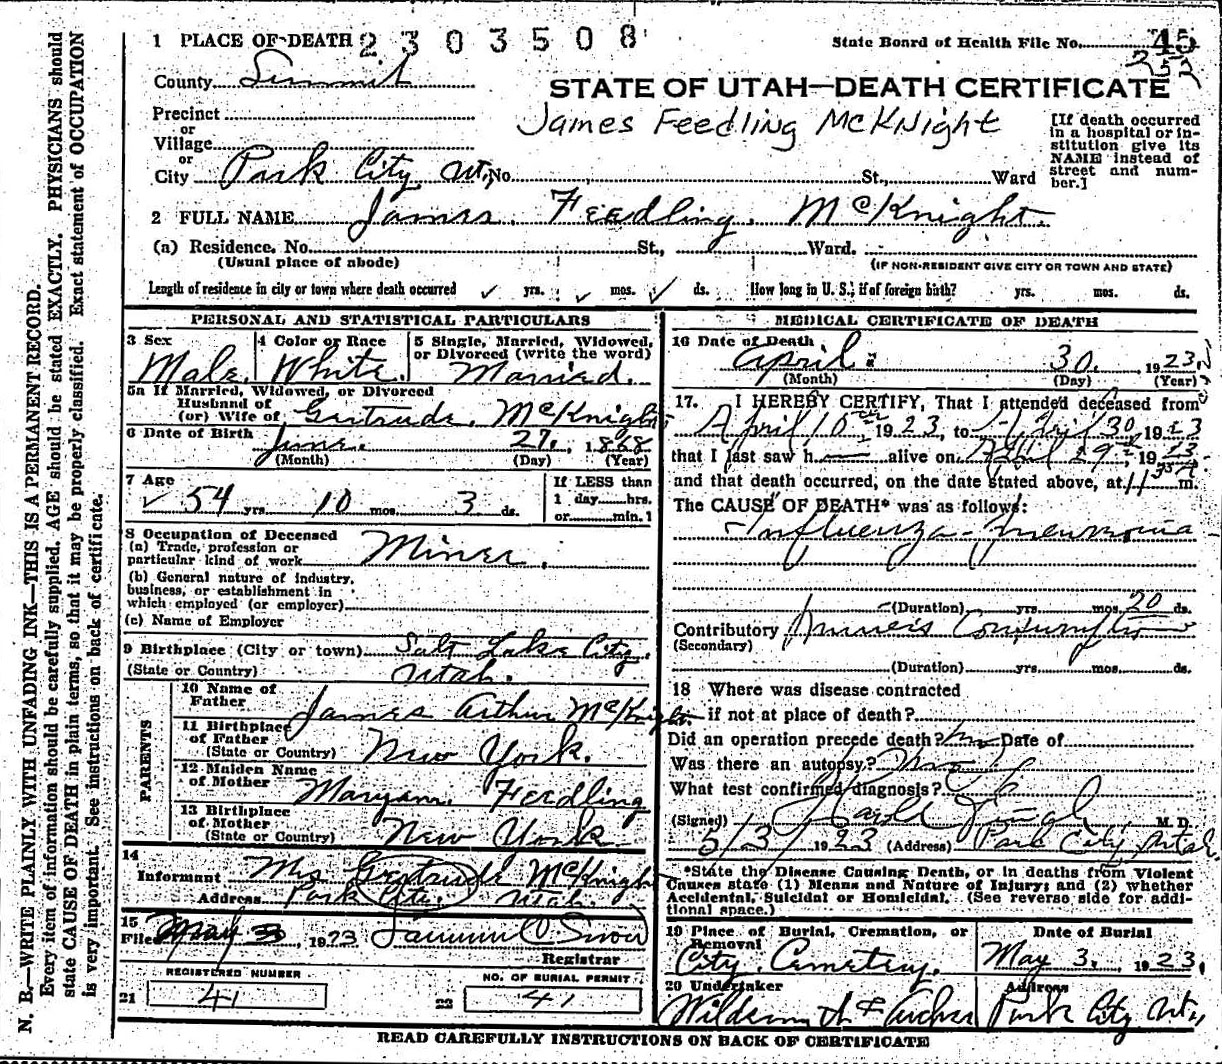 1 PLACE OF DEATH 2303508
State Board of Health File No. 45
252
County Summit
STATE OF UTAH—DEATH CERTIFICATE
Precinct
or
Village
or
City Park City, Ut, No. St., Ward
James Feedling McKnight
[If death occurred
in a hospital or in-
stitution give its
NAME instead of
street and num-
ber.]
2 FULL NAME James. Feedling. McKnight.
(a) Residence. No. St., Ward.
(Usual place of abode) (IF NON-RESIDENT GIVE CITY OR TOWN AND STATE)
Length of residence in city or town where death occurred ✓ yrs. ✓ mos. ✓ ds. How long in U. S., if of foreign birth? yrs. mos. ds.
PERSONAL AND STATISTICAL PARTICULARS
3 Sex 4 Color or Race 5 Single, Married, Widowed,
or Divorced (write the word)
Male. White. Married.
5a If Married, Widowed, or Divorced
Husband of
(or) Wife of Gertrude McKnight
6 Date of Birth June. 27. 1868
(Month) (Day) (Year)
7 Age If LESS than
✓ 54 yrs. 10 mos. 3 ds. 1 day hrs.
or min. 1
8 Occupation of Deceased
(a) Trade, profession or
particular kind of work Miner.
(b) General nature of industry,
business, or establishment in
which employed (or employer)
(c) Name of Employer
9 Birthplace (City or town) Salt Lake City.
(State or Country) Utah.
PARENTS
10 Name of
Father James Arthur McKnight
11 Birthplace
of Father
(State or Country) New York.
12 Maiden Name
of Mother Maryann. Feedling
13 Birthplace
of Mother
(State or Country) New York
14
Informant Mrs Gertrude McKnight
Address Park City. Utah.
15
Filed May 3, 1923
Registrar
REGISTERED NUMBER NO. OF BURIAL PERMIT
21 41 22 41
MEDICAL CERTIFICATE OF DEATH
16 Date of Death
April 30. , 1923
(Month) (Day) (Year)
17. I HEREBY CERTIFY, That I attended deceased from
April 10th 1923, to April 30 1923
that I last saw h alive on April 29th, 1923
and that death occurred, on the date stated above, at 11 35 A m.
The CAUSE OF DEATH* was as follows:
Influenza-Pneumonia
(Duration) yrs. mos. 20 ds.
Contributory Miners Consumption
(Secondary)
(Duration) yrs. mos. ds.
18 Where was disease contracted
if not at place of death?
Did an operation precede death? no Date of
Was there an autopsy? no
What test confirmed diagnosis?
(Signed) Harold M. D.
5/3/1923 (Address) Park City, Utah.
*State the Disease Causing Death, or in deaths from Violent
Causes state (1) Means and Nature of Injury; and (2) whether
Accidental, Suicidal or Homicidal. (See reverse side for addi-
tional space.)
19 Place of Burial, Cremation, or Date of Burial
Removal
City Cemetery. May 3, 1923,
20 Undertaker Address
Archer Park City Ut,
READ CAREFULLY INSTRUCTIONS ON BACK OF CERTIFICATE
N. B.—WRITE PLAINLY WITH UNFADING INK—THIS IS A PERMANENT RECORD.
Every item of information should be carefully supplied. AGE should be stated EXACTLY. PHYSICIANS should
state CAUSE OF DEATH in plain terms, so that it may be properly classified. Exact statement of OCCUPATION
is very important. See instructions on back of certificate.